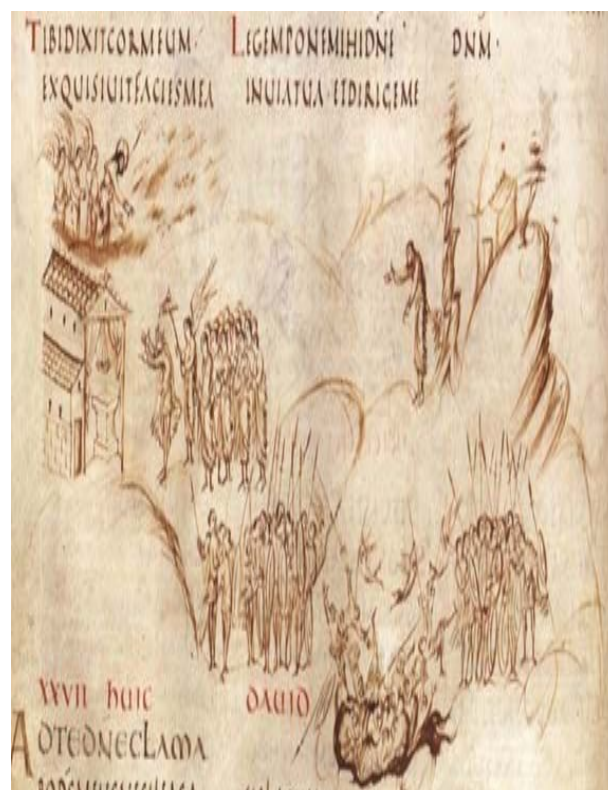 TIBI DIXIT COR MEUM·
EXQUISIUIT FACIES MEA
LEGEM PONE MIHI DNE
IN UIA TUA · ET DIRIGE ME
DNM·
XXVII HUIC DAUID
AD TE DNE CLAMA